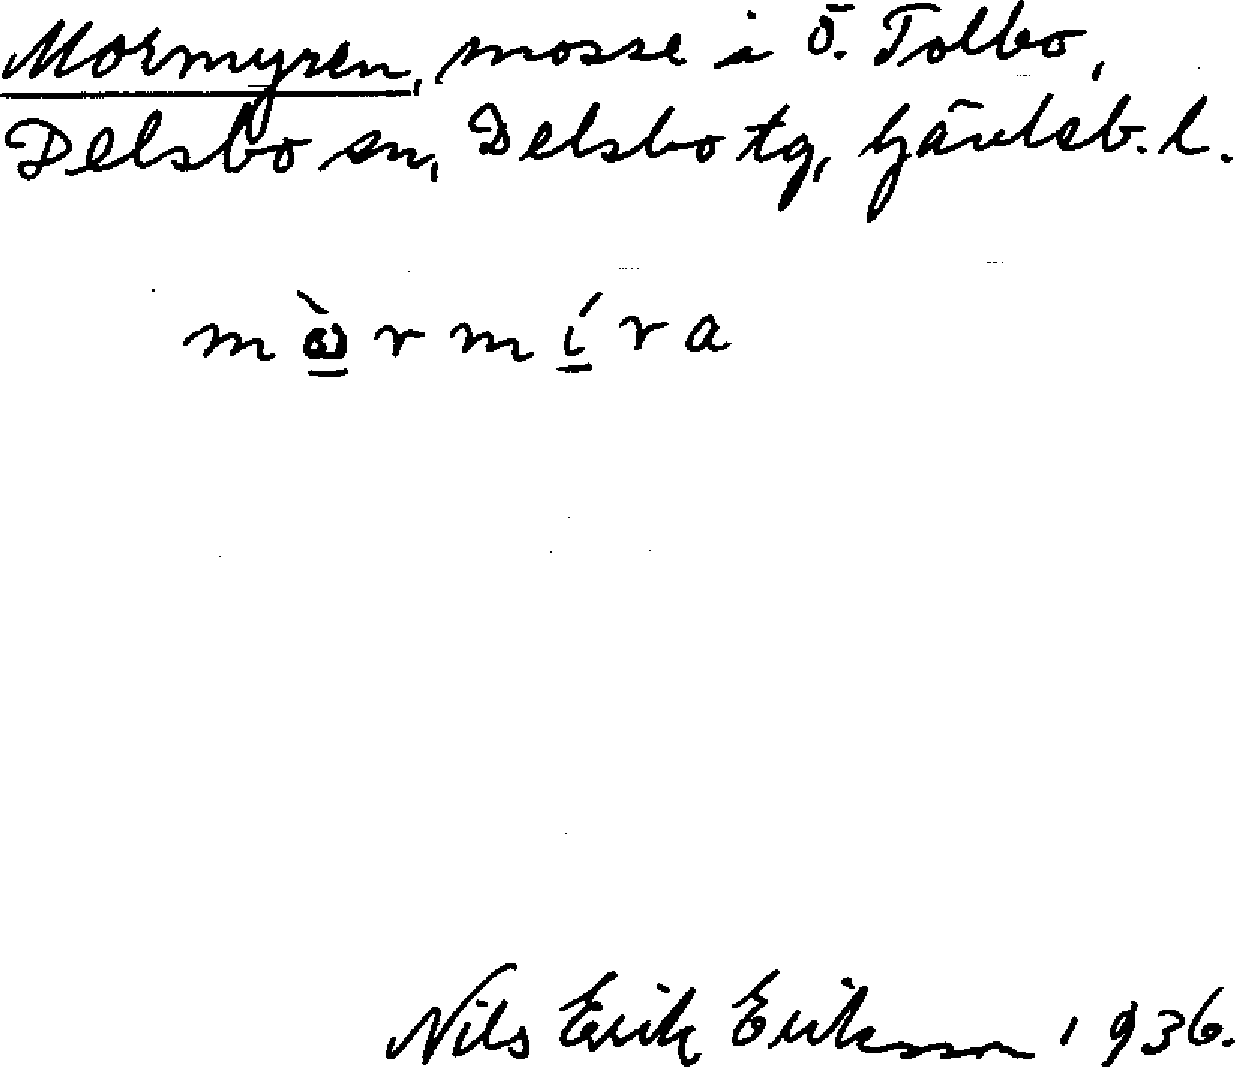 Mormyren, mosse i Ö. Tolbo,
Delsbo sn, Delsbo tg, Gävleb. l.
mὼrmíra
Nils Erik Eriksson 1936.